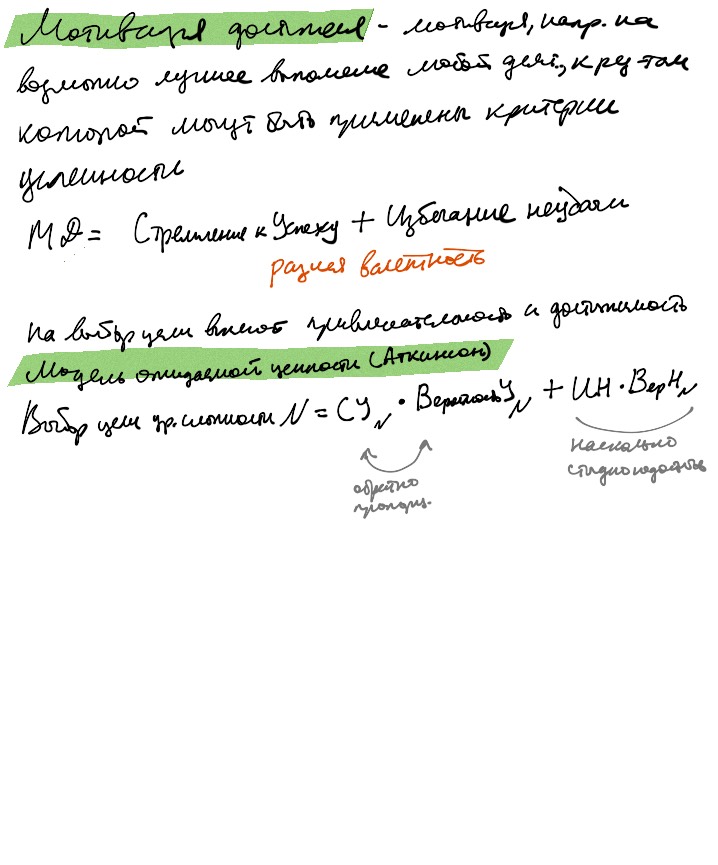 Мотивация достижения - мотивация, напр. на
возможно лучшее выполнение любой деят., к рез-там
которой могут быть применены критерии
успешности
МД = Стремление к Успеху + Избегание неудачи
разная валентность
На выбор цели влияют привлекательность и достижимость
Модель ожидаемой ценности (Аткинсон)
Выбор цели ур. сложности N = СУ_N · Вероятность У_N + ИН · Вер Н_N
обратно
пропорц.
насколько
стыдно недостичь